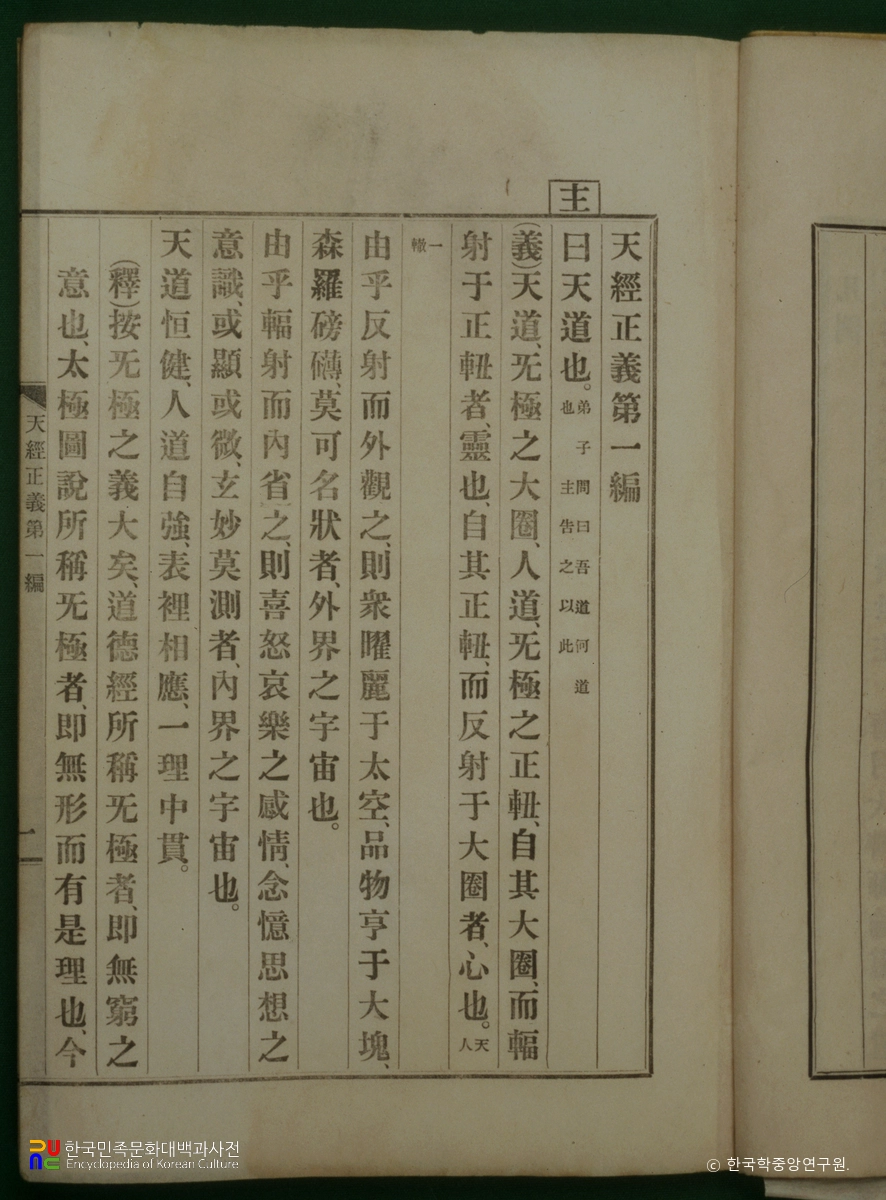 天經正義第一編
主
曰天道也。弟子問曰吾道何道也主告之以此
(義)天道、旡極之大圈、人道、旡極之正軸、自其大圈、而輻
射于正軸者、靈也、自其正軸、而反射于大圈者、心也。天人
一轍
由乎反射而外觀之、則衆曜麗于太空、品物亨于大塊、
森羅磅礴、莫可名狀者、外界之宇宙也。
由乎輻射而內省之、則喜怒哀樂之感情、念憶思想之
意識、或顯或微、玄妙莫測者、內界之宇宙也。
天道恒健、人道自強、表裡相應、一理中貫。
(釋)按旡極之義大矣、道德經所稱旡極者、即無窮之
意也、太極圖說所稱旡極者、即無形而有是理也、今
天經正義第一編
一
한국민족문화대백과사전
Encyclopedia of Korean Culture
© 한국학중앙연구원.